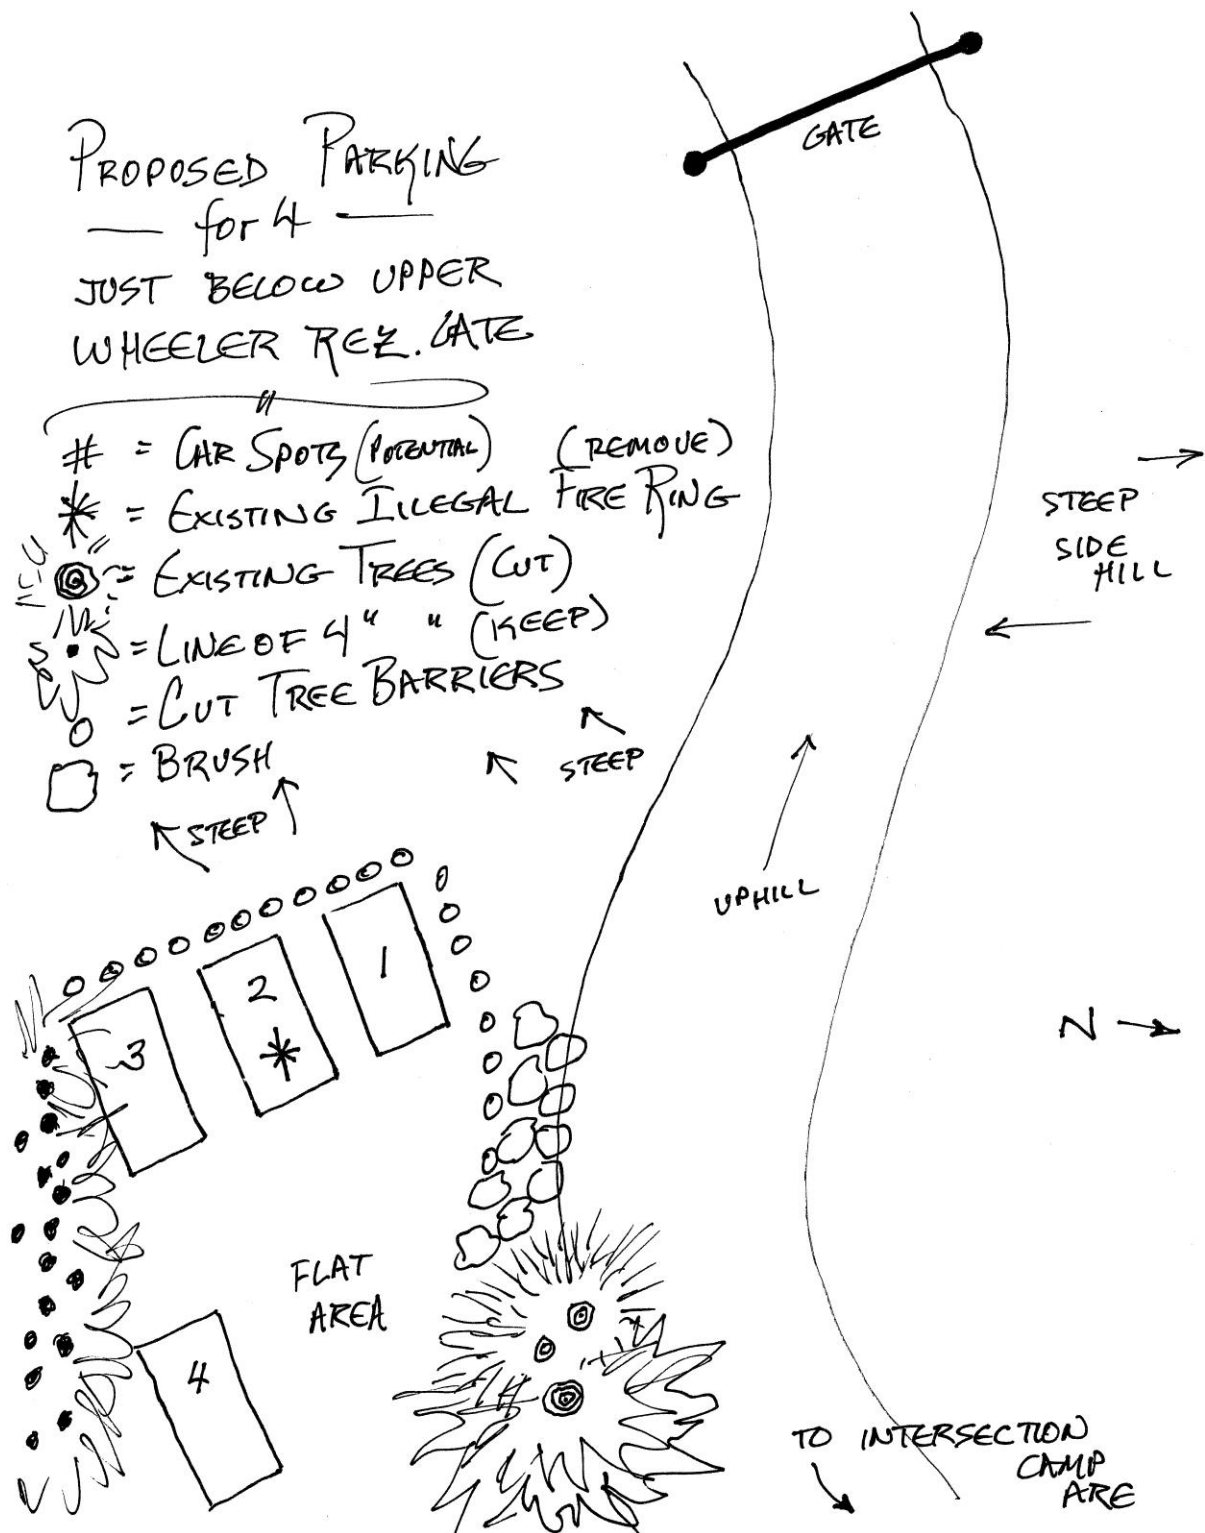 PROPOSED PARKING
— for 4 —
JUST BELOW UPPER
WHEELER REZ. GATE
# = CAR SPOTS (POTENTIAL)
(REMOVE)
* = EXISTING ILLEGAL FIRE RING
= EXISTING TREES (CUT)
= LINE OF 4" " (KEEP)
= CUT TREE BARRIERS
= BRUSH
GATE
STEEP
SIDE
HILL
STEEP
STEEP
UPHILL
N
1
2
*
3
FLAT
AREA
4
TO INTERSECTION
CAMP
ARE